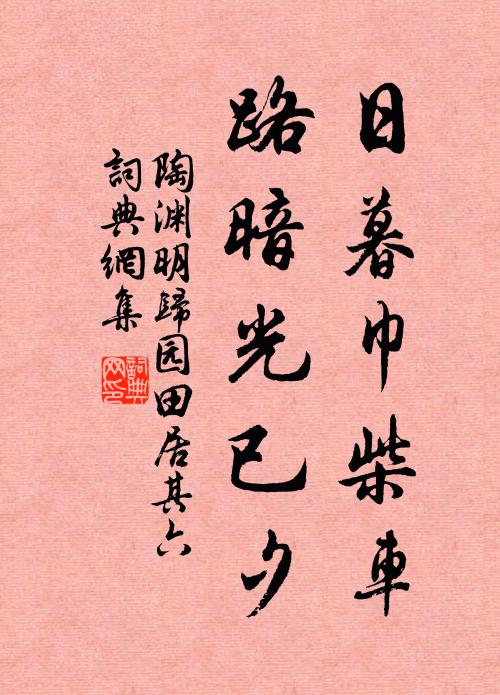 日暮巾柴車
路暗光已夕
陶渊明歸园田居其六
詞典網集
詞典网印